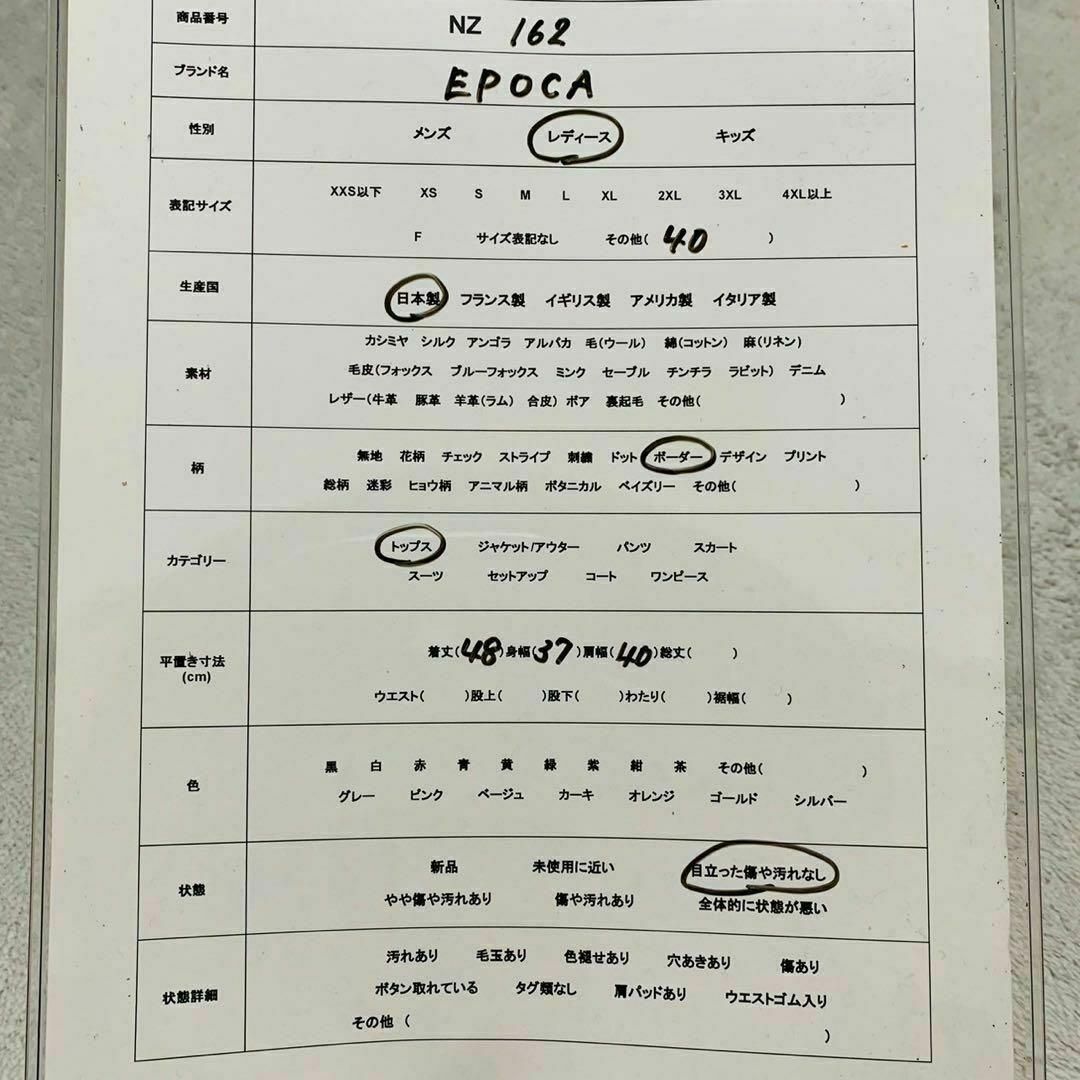 商品番号 NZ 162
ブランド名 EPOCA
性別 メンズ レディース キッズ
表記サイズ
XXS以下 XS S M L XL 2XL 3XL 4XL以上
F サイズ表記なし その他( 40 )
生産国 日本製 フランス製 イギリス製 アメリカ製 イタリア製
素材
カシミヤ シルク アンゴラ アルパカ 毛(ウール) 綿(コットン) 麻(リネン)
毛皮(フォックス ブルーフォックス ミンク セーブル チンチラ ラビット) デニム
レザー(牛革 豚革 羊革(ラム) 合皮) ボア 裏起毛 その他( )
柄
無地 花柄 チェック ストライプ 刺繍 ドット ボーダー デザイン プリント
総柄 迷彩 ヒョウ柄 アニマル柄 ボタニカル ペイズリー その他( )
カテゴリー
トップス ジャケット/アウター パンツ スカート
スーツ セットアップ コート ワンピース
平置き寸法
(cm)
着丈(48)身幅(37)肩幅(40)総丈( )
ウエスト( )股上( )股下( )わたり( )裾幅( )
色
黒 白 赤 青 黄 緑 紫 紺 茶 その他( )
グレー ピンク ベージュ カーキ オレンジ ゴールド シルバー
状態
新品 未使用に近い 目立った傷や汚れなし
やや傷や汚れあり 傷や汚れあり 全体的に状態が悪い
状態詳細
汚れあり 毛玉あり 色褪せあり 穴あきあり 傷あり
ボタン取れている タグ類なし 肩パッドあり ウエストゴム入り
その他 ( )